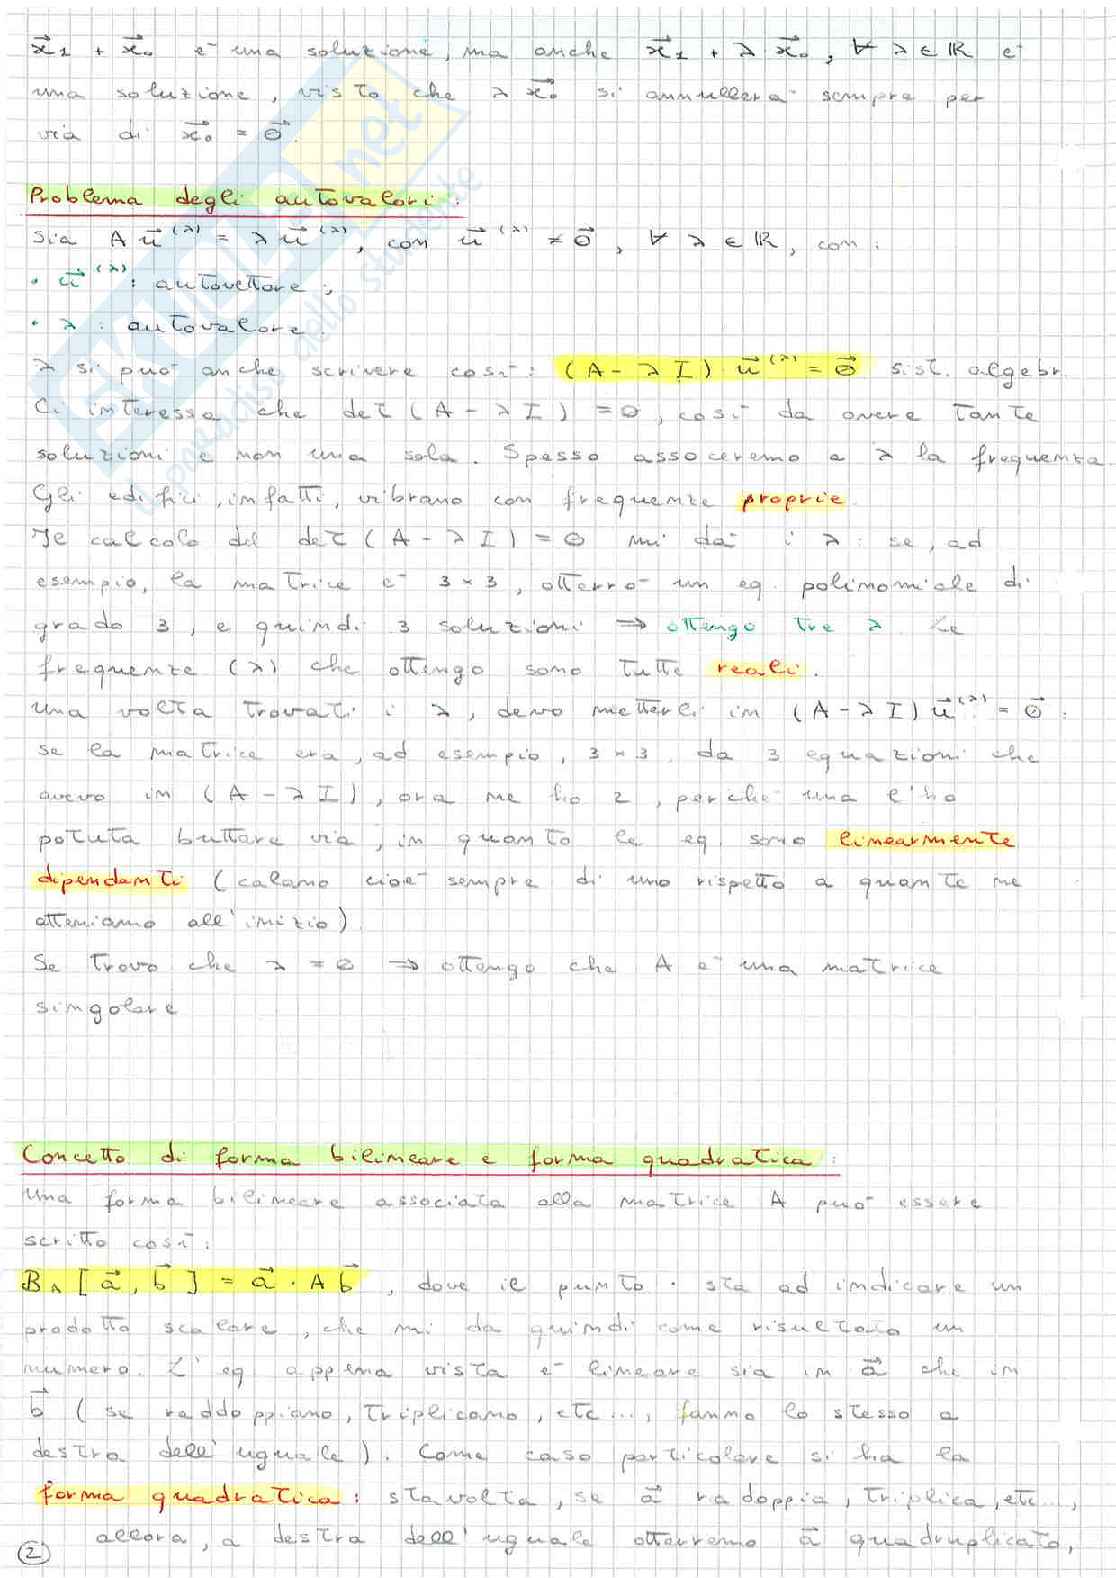 x⃗₁ + x⃗₀ è una soluzione, ma anche x⃗₁ + λ x⃗₀, ∀ λ ∈ ℝ è
una soluzione, visto che λ x⃗₀ si annullerà sempre per
via di x⃗₀ = 0⃗.
Problema degli autovalori:
Sia A u⃗^(λ) = λ u⃗^(λ), con u⃗^(λ) ≠ 0⃗, ∀ λ ∈ ℝ, con:
• u⃗^(λ): autovettore;
• λ: autovalore.
λ si può anche scrivere così: (A - λ I) u⃗^(λ) = 0⃗ sist. algebr.
Ci interessa che det (A - λ I) = 0, così da avere tante
soluzioni e non una sola. Spesso assoceremo a λ la frequenza.
Gli edifici, infatti, vibrano con frequenze proprie.
Il calcolo del det (A - λ I) = 0 mi dà i λ: se, ad
esempio, la matrice è 3×3, otterrò un eq. polinomiale di
grado 3, e quindi 3 soluzioni ⇒ ottengo tre λ. Le
frequenze (λ) che ottengo sono tutte reali.
Una volta trovati i λ, devo metterli in (A - λ I) u⃗^(λ) = 0⃗:
se la matrice era, ad esempio, 3×3, da 3 equazioni che
avevo in (A - λ I), ora ne ho 2, perché una l'ho
potuta buttare via, in quanto le eq. sono linearmente
dipendenti (calano cioè sempre di uno rispetto a quante ne
otteniamo all'inizio).
Se trovo che λ = 0 ⇒ ottengo che A è una matrice
singolare
Concetto di forma bilineare e forma quadratica:
Una forma bilineare associata alla matrice A può essere
scritto così:
B_A [a⃗, b⃗] = a⃗ · A b⃗, dove il punto · sta ad indicare un
prodotto scalare, che mi da quindi come risultato un
numero. L'eq appena vista è lineare sia in a⃗ che in
b⃗ (se raddoppiano, triplicano, etc..., fanno lo stesso a
destra dell'uguale). Come caso particolare si ha la
forma quadratica: stavolta, se a⃗ raddoppia, triplica, etc...,
allora, a destra dell'uguale otterremo a⃗ quadruplicato,
2
SKUOLA.net
il paradiso dello studente